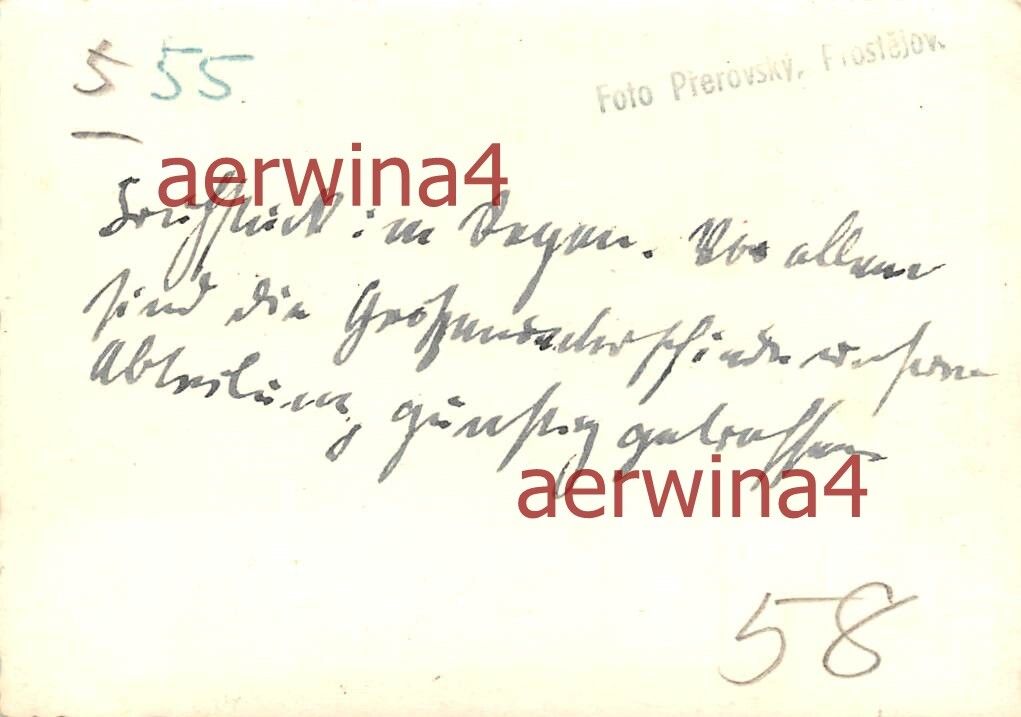 5 55
Foto Přerovský, Prostějov.
aerwina4
Frühstück im Regen. Vor allem
sind die Größenunterschiede unserer
Abteilung günstig getroffen
aerwina4
58